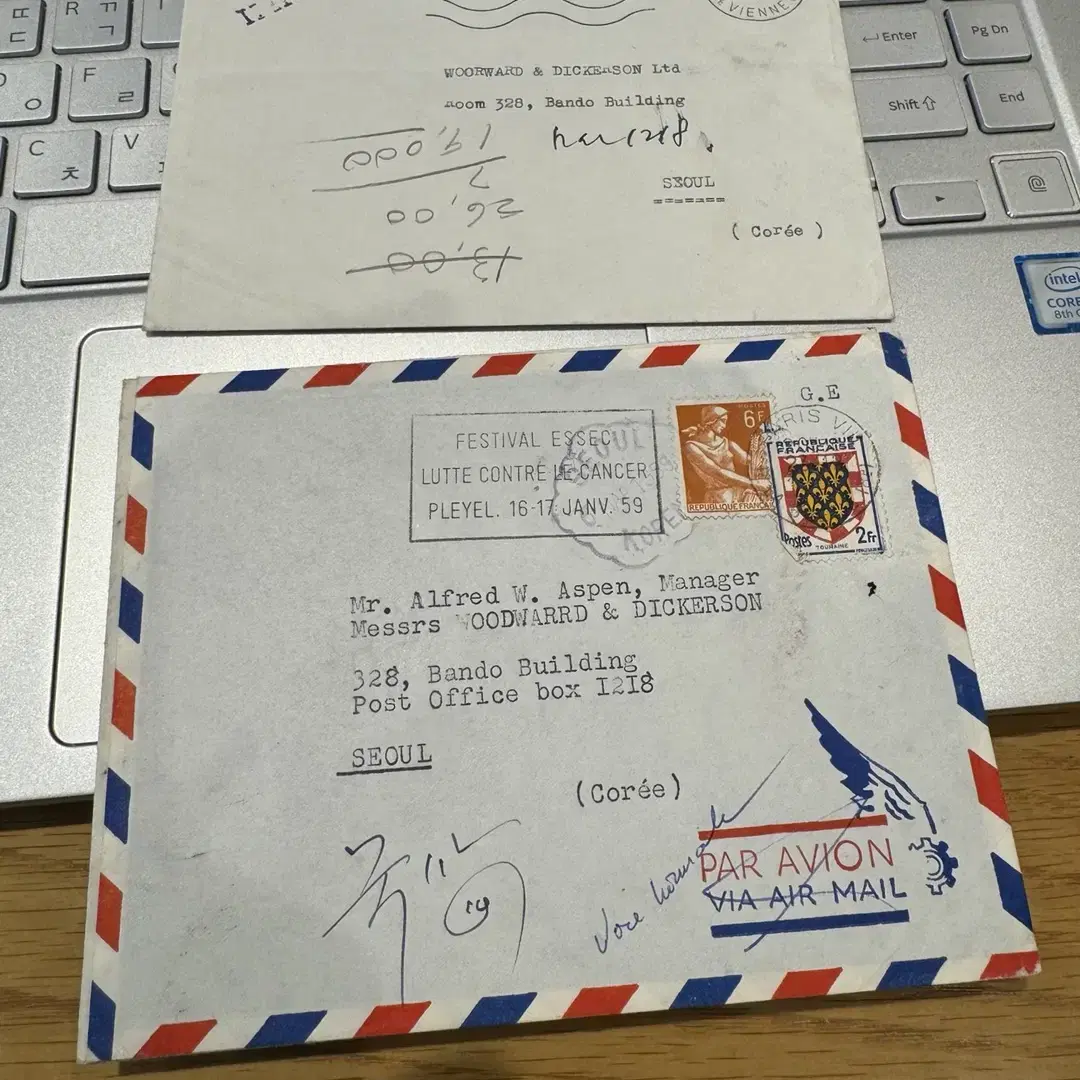 R
ㄱ
Enter
Pg Dn
ㅇ
F
ㄹ
Shift
End
C
ㅊ
V
@
VIENNE
WOORWARD & DICKEnSON Ltd
Room 328, Bando Building
19,000
2
26,00
13,00
SEOUL
=======
( Corée )
intel
CORE
8th G
FESTIVAL ESSEC
LUTTE CONTRE LE CANCER
PLEYEL. 16-17 JANV. 59
SEOUL
KOREA
G.E
POSTES
6F
REPUBLIQUE FRANÇAI
RIS VII
REPUBLIQUE
FRANÇAISE
Postes
2Fr
TOURAINE
Mr. Alfred W. Aspen, Manager
Messrs WOODWARRD & DICKERSON
328, Bando Building
Post Office box I2I8
SEOUL
(Corée)
Voie normale
PAR AVION
VIA AIR MAIL